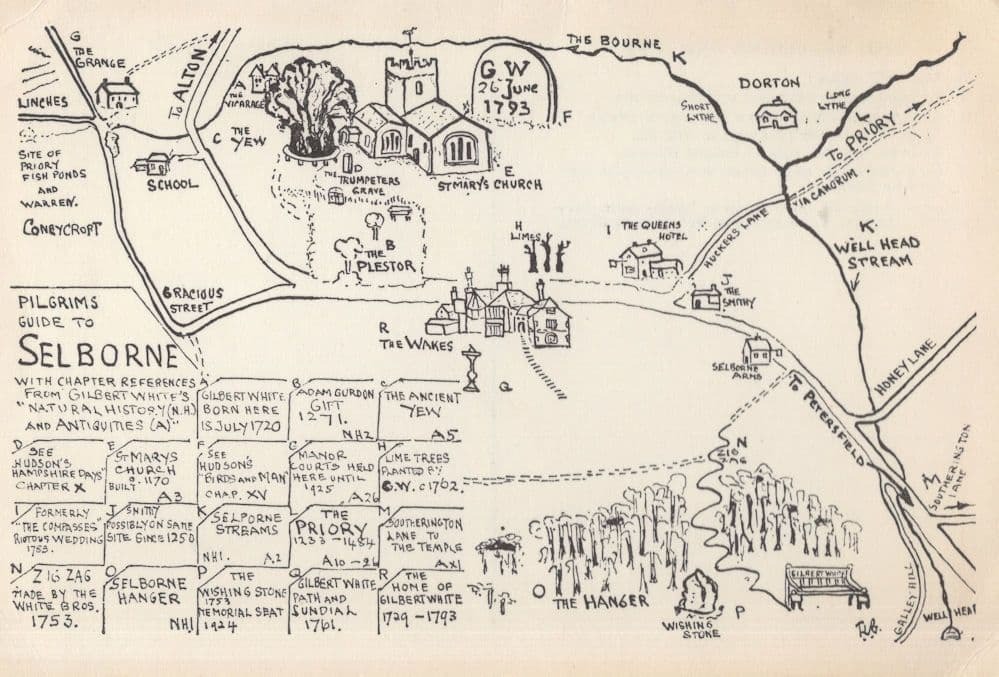 G
THE
GRANGE
LINCHES
SITE OF
PRIORY
FISH PONDS
AND
WARREN.
CONEYCROFT
SCHOOL
TO ALTON
A
THE
VICARAGE
C THE
YEW
THE BOURNE
K
G W
26 JUNE
1793
F
D
THE TRUMPETERS
GRAVE
E
ST MARY'S CHURCH
B
THE
PLESTOR
SHORT
LYTHE
DORTON
LONG
LYTHE
L
TO PRIORY
VIA CANORUM
HUCKERS LANE
H
LIMES
I THE QUEENS
HOTEL
J
THE
SMITHY
K.
WELL HEAD
STREAM
GRACIOUS
STREET
R
THE WAKES
Q
SELBORNE
ARMS
TO PETERSFIELD
HONEY LANE
M
SOUTHERINGTON
LANE
N
ZIG
ZAG
O THE HANGER
WISHING
STONE
P
GILBERT WHITE
GALLEY HILL
WELL HEAD
PILGRIMS
GUIDE TO
SELBORNE
WITH CHAPTER REFERENCES
FROM GILBERT WHITE'S
"NATURAL HISTORY (N.H.)
AND ANTIQUITIES (A)"
A
GILBERT WHITE
BORN HERE
18 JULY 1720
B
ADAM GURDON
GIFT
1271.
NH2
C
THE ANCIENT
YEW
A5
D
SEE
HUDSON'S
HAMPSHIRE DAYS"
CHAPTER X
E
ST MARYS
CHURCH
BUILT c. 1170
A3
F
SEE
HUDSON'S
"BIRDS AND MAN"
CHAP. XV
G
MANOR
COURTS HELD
HERE UNTIL
1925
A26
H
LIME TREES
PLANTED BY
G.W. c1762.
I
FORMERLY
"THE COMPASSES"
RIOTOUS WEDDING
1753.
J
SMITHY
POSSIBLY ON SAME
SITE SINCE 1250
K
SELBORNE
STREAMS
NH1. A2
L
THE
PRIORY
1233-1484
A10-26
M
SOUTHERINGTON
LANE TO
THE TEMPLE
AXI
N
ZIG ZAG
MADE BY THE
WHITE BROS.
1753.
O
SELBORNE
HANGER
NH1
P
THE
WISHING STONE
1753
MEMORIAL SEAT
1924
Q
GILBERT WHITE
PATH AND
SUNDIAL
1761.
R
THE
HOME OF
GILBERT WHITE
1729-1793